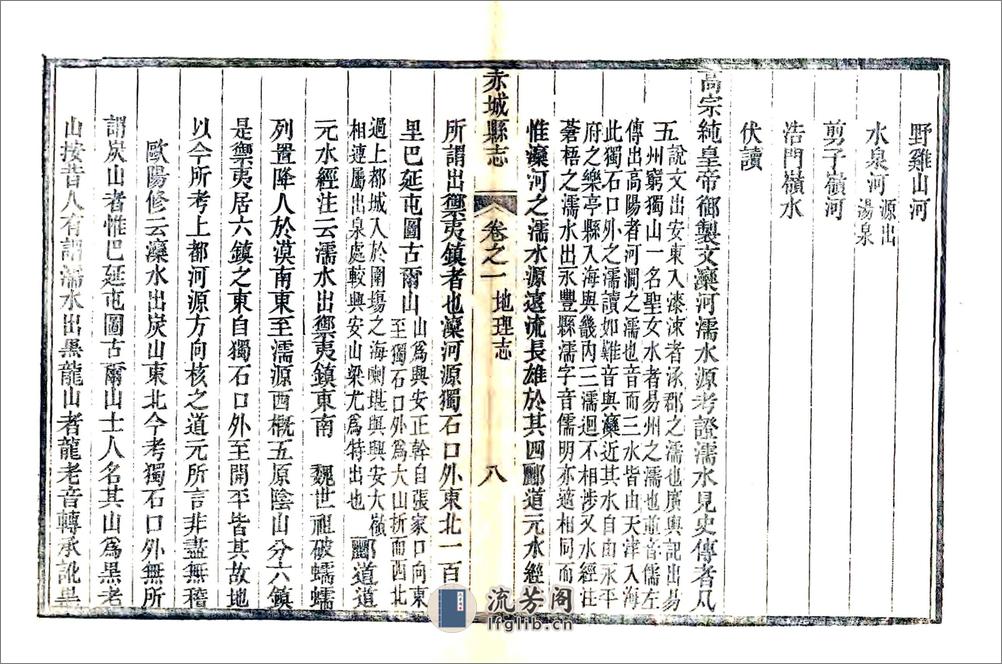 野雞山河
水泉河 源出湯泉
剪子嶺河
浩門嶺水
伏讀
高宗純皇帝御製文灤河濡水源考證濡水見史傳者凡
五說文出安東入漆涑者涿郡之濡也廣輿記出易
州窮獨山一名聖女水者易州之濡也前音儒左
傳出高陽者河澗之濡也音而三水皆由天津入海
此獨石口外之濡讀如難音與灤近其水自由永平
府之樂亭縣入海與畿內三濡迥不相涉又水經注
蒼梧之濡水出永豐縣濡字音儒明亦適相同而
惟灤河之濡水源遠流長雄於其四酈道元水經
赤城縣志 卷之一 地理志 八
所謂出禦夷鎮者也灤河源獨石口外東北一百
里巴延屯圖古爾山 山爲興安正幹自張家口向東
至獨石口外爲大山折而西北
過上都城入於圍場之海喇堪與興安大嶺
相連屬出泉處較興安山梁尤爲特出也 酈道道
元水經注云濡水出禦夷鎮東南 魏世祖破蠕蠕
列置降人於漠南東至濡源西概五原陰山分六鎮
是禦夷居六鎮之東自獨石口外至開平皆其故地
以今所考上都河源方向核之道元所言非盡無稽
歐陽修云灤水出炭山東北今考獨石口外無所
謂炭山者惟巴延屯圖古爾山士人名其山爲黑老
山按昔人有謂濡水出黑龍山者龍老音轉承訛黑
流芳阁
lfglib.cn